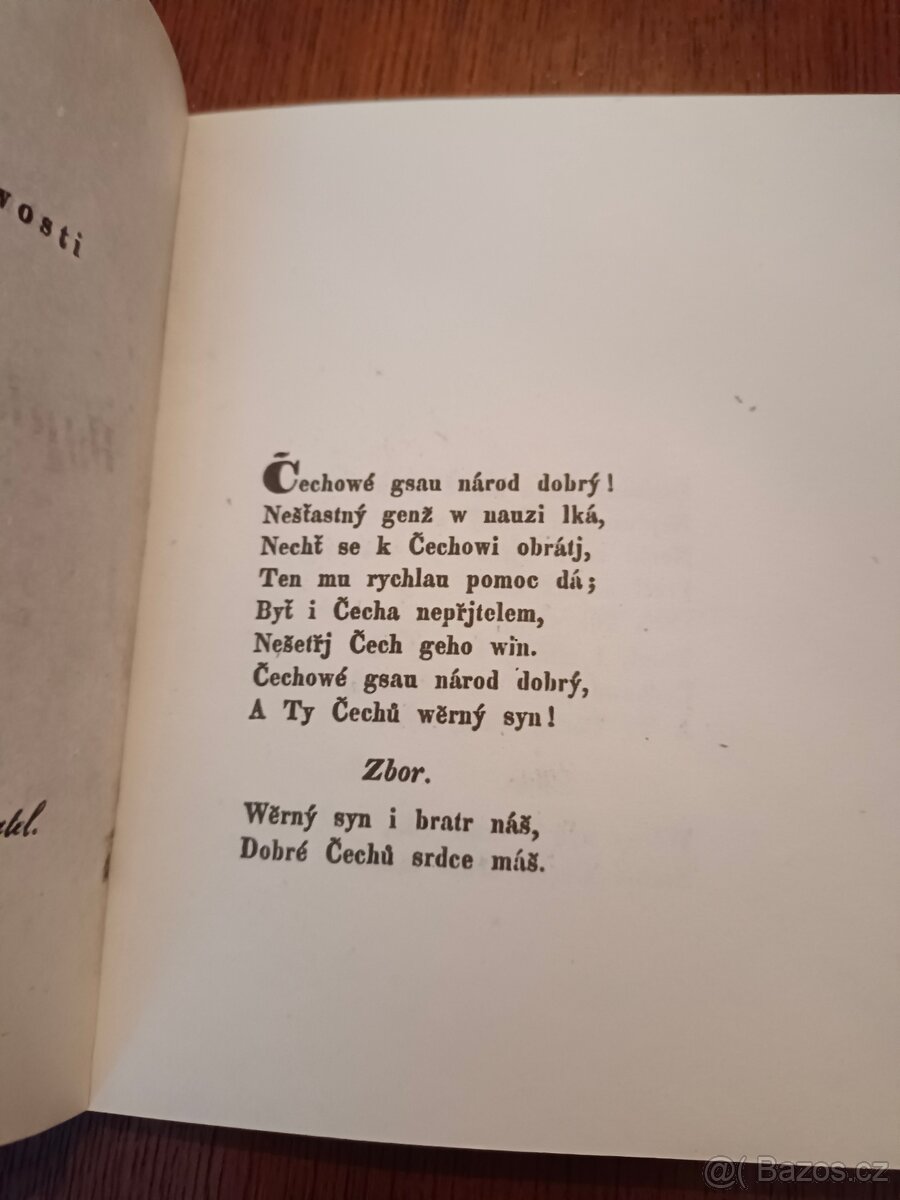 vosti
Čechowé gsau národ dobrý!
Nešťastný genž w nauzi lká,
Nechť se k Čechowi obrátj,
Ten mu rychlau pomoc dá;
Byť i Čecha nepřjtelem,
Nešetřj Čech geho win.
Čechowé gsau národ dobrý,
A Ty Čechů wěrný syn!
Zbor.
Wěrný syn i bratr náš,
Dobré Čechů srdce máš.
@( Bazos.cz